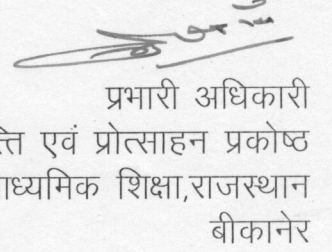 प्रभारी अधिकारी
एवं प्रोत्साहन प्रकोष्ठ
शिक्षा,राजस्थान
बीकानेर